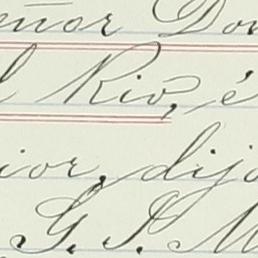 eñor Don
l Rio, é
ior, dijo
G. S. M